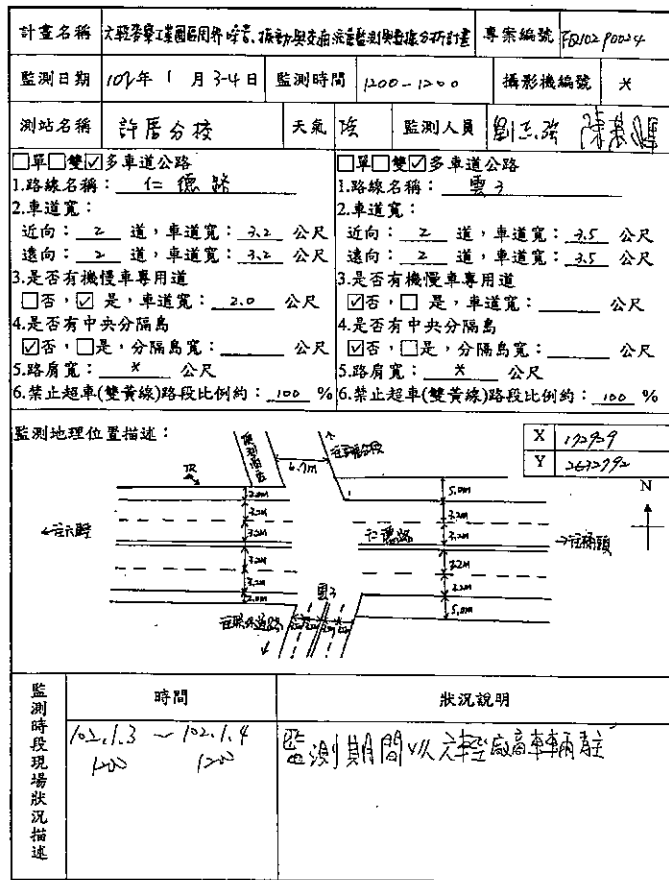 計畫名稱 六輕麥寮工業園區周界噪音、振動與交通流量監測與數據分析計畫 專案編號 FQ102P0024
監測日期 102年 1 月 3-4日 監測時間 1200-1200 攝影機編號 *
測站名稱 許厝分校 天氣 陰 監測人員 劉志強
□單□雙☑多車道公路
1.路線名稱： 仁德路
2.車道寬：
近向： 2 道，車道寬： 3.2 公尺
遠向： 2 道，車道寬： 3.2 公尺
3.是否有機慢車專用道
□否，☑是，車道寬： 2.0 公尺
4.是否有中央分隔島
☑否，□是，分隔島寬： 公尺
5.路肩寬： * 公尺
6.禁止超車(雙黃線)路段比例約： 100 %
□單□雙☑多車道公路
1.路線名稱： 雲3
2.車道寬：
近向： 2 道，車道寬： 3.5 公尺
遠向： 2 道，車道寬： 3.5 公尺
3.是否有機慢車專用道
☑否，□是，車道寬： 公尺
4.是否有中央分隔島
☑否，□是，分隔島寬： 公尺
5.路肩寬： * 公尺
6.禁止超車(雙黃線)路段比例約： 100 %
監測地理位置描述：
X 172929
Y 2632792
N
6.7m
TR
2.0m
3.2m
3.2m
3.2m
3.2m
2.0m
←往六輕
仁德路
→往橋頭
5.0m
3.2m
3.2m
3.2m
3.2m
5.0m
雲3
監測時段現場狀況描述
時間 狀況說明
102.1.3 ～ 102.1.4 監測期間以六輕廠商車輛為主
1200 1200